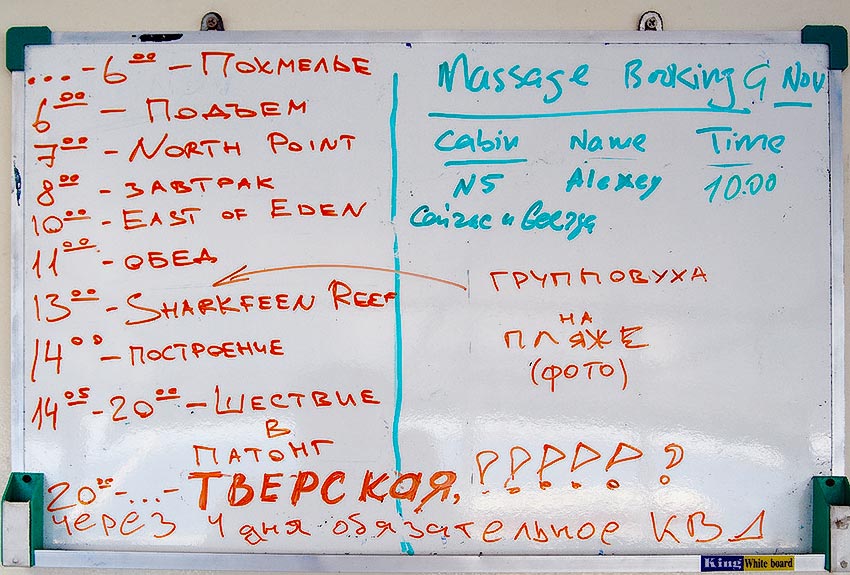 ... - 6⁰⁰ - ПОХМЕЛЬЕ
6⁰⁰ - ПОДЪЕМ
7⁰⁰ - NORTH POINT
8⁰⁰ - ЗАВТРАК
10⁰⁰ - EAST OF EDEN
11⁰⁰ - ОБЕД
13⁰⁰ - SHARKFEEN REEF
14⁰⁰ - ПОСТРОЕНИЕ
14⁰⁵ - 20⁰⁰ - ШЕСТВИЕ
В
ПАТОНГ
20⁰⁰ - ... - ТВЕРСКАЯ, !!!!!?
ЧЕРЕЗ 4 дня обязательное КВД
Massage Booking 9 Nov
Cabin Name Time
N5 Alexey 10.00
Сейчас и Всегда
ГРУППОВУХА
НА
ПЛЯЖЕ
(ФОТО)
King White board